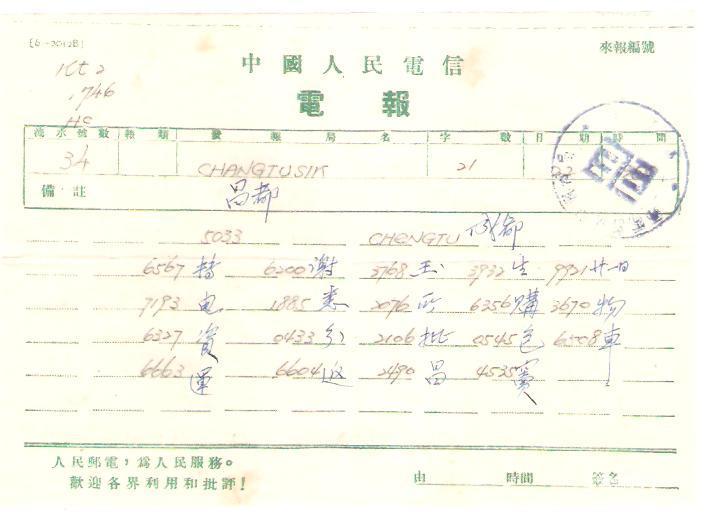 [6-2012B]
中國人民電信
來報編號
電報
流水號數 報類 發報局名 字數 日期 時間
34 CHANGTUSIK 21 22
備註 昌都
5033 CHENGTU 成都
6567 6200 謝 3768 玉 3932 生 9921 廿一日
7193 电 1885 悉 2076 所 6356 購 3670 物
6327 資 0433 分 2106 批 0545 包 6508 車
6663 運 6604 返 2490 昌 4535
人民郵電，爲人民服務。
歡迎各界利用和批評！
由 時間 簽名